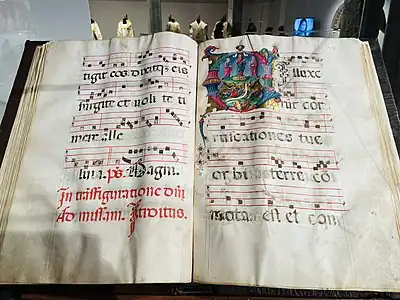 tigit eos dixitqꝫ eis
surgite et noli te ti
mere alle
luia. p̃s. Magni.
In trãsfiguratione dñi
Ad missam. Itroitus.
Illuxe
rũt cor
ruscationes tue
orbi terre co
mota est et con